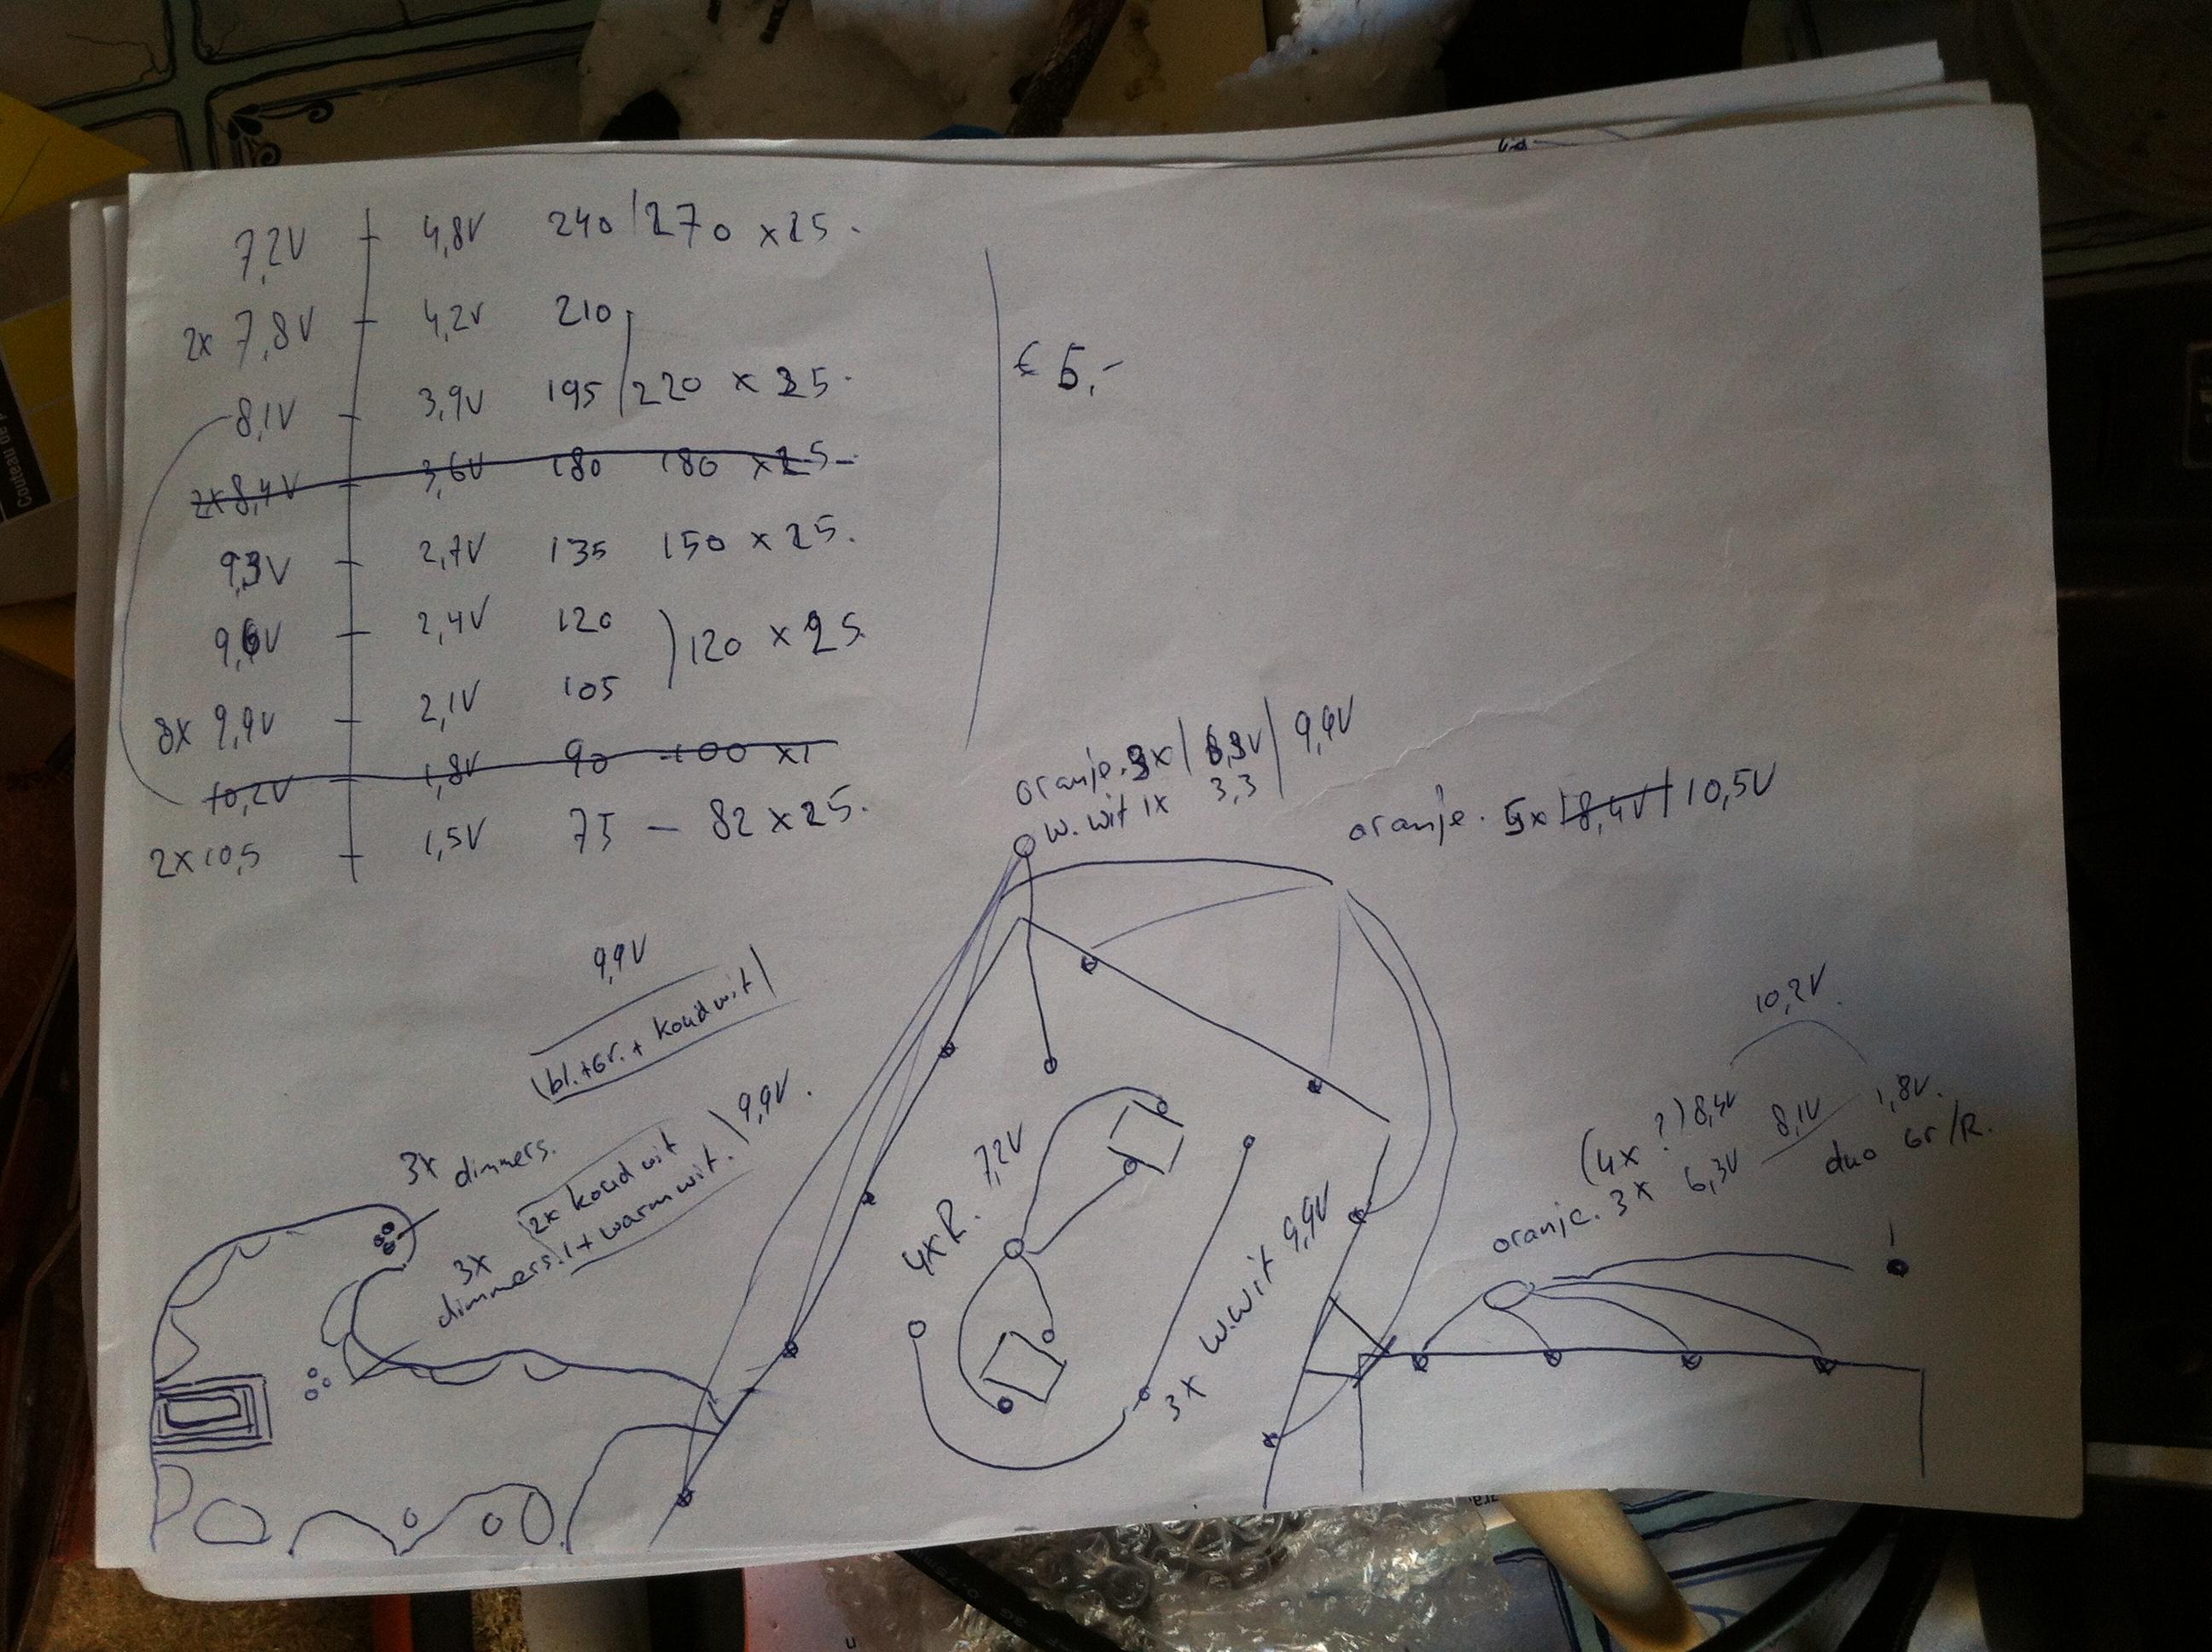 7,2V 4,8V 240/270 x25.
2x 7,8V 4,2V 210
8,1V 3,9V 195/220 x 25.
2x 8,4V 3,6V 180 180 x25-
9,3V 2,7V 135 150 x 25.
9,6V 2,4V 120
) 120 x 25
8x 9,9V 2,1V 105
10,2V 1,8V 90 100 x1
2x10,5 1,5V 75 - 82 x25.
€ 5,-
oranje. 3x | 6,3V | 9,9V
w.wit 1x 3,3
oranje. 5x |8,4V| 10,5V
9,9V
(bl.+Gr. + koud wit)
3x dimmers.
2x koud wit
3x
dimmers. 1+ warm wit. | 9,9V.
4x R. 7,2V
3x w.wit 9,9V
10,2V.
(4x ?) 8,4V 8,1V 1,8V.
oranje. 3x 6,3V duo Gr/R.
Couteau de